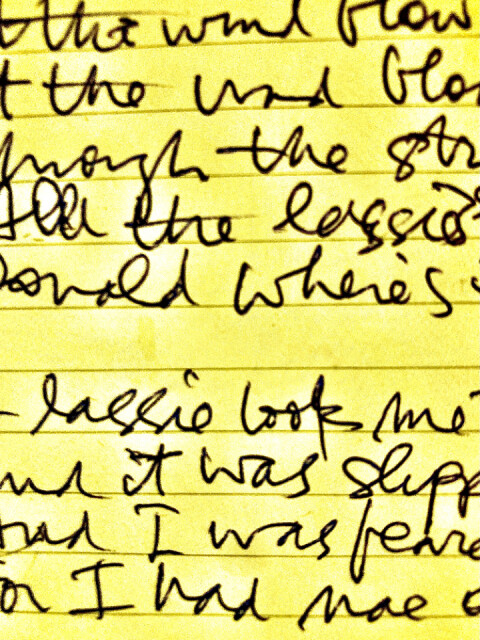 t the wind blow
t the wind blo
hrough the str
All the lassies
Donald where's
lassie took me
and it was slipp
and I was feare
for I had nae o